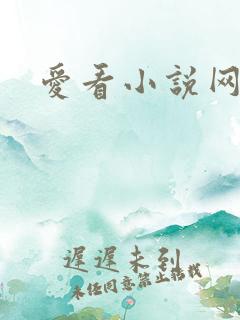 愛看小說网
遲遲未到
未经同意禁止转载